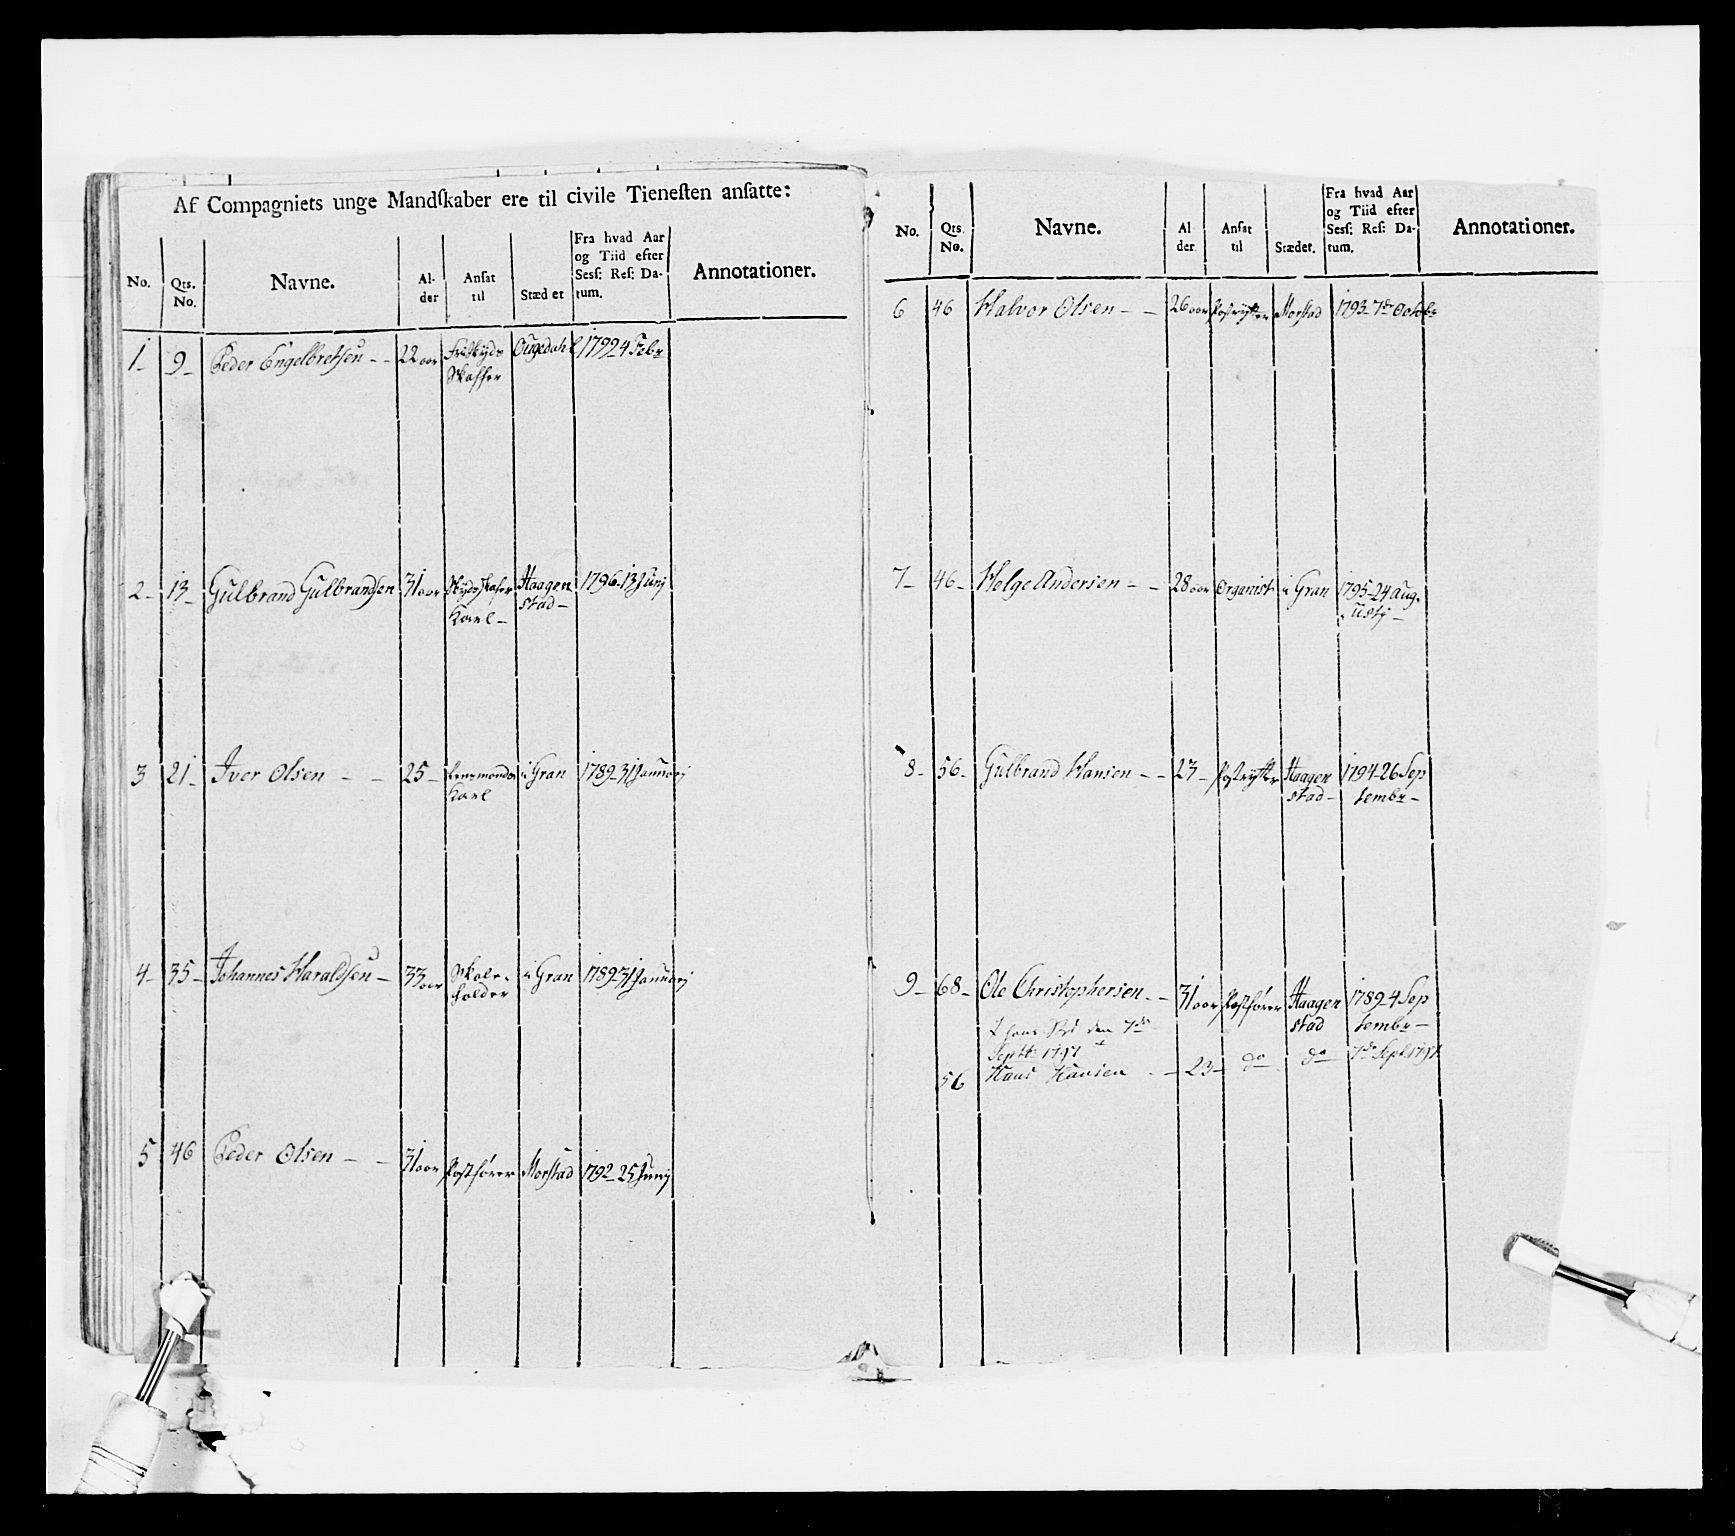 Af Compagniets unge Mandſkaber ere til civile Tieneſten anſatte:
No. Qts. No. Navne. Al- der Anſat til Stædet Fra hvad Aar og Tiid efter Sesſ: Reſ: Da- tum. Annotationer.
1- 9- Peder Engelbretsen - - 22 aar Friskyds Ougedahl 1792 4 Febr
Skaffer
2- 13- Gulbrand Gulbrandsen 31 aar Skydsskafer Haagen 1796-13 Junj
Karl- stad-
3 21- Iver Olsen - - 25- Lensmands i Gran 1789-31 Januarj
Karl
4- 35- Johannes Haraldsen - 33 aar Skole- i Gran 1789-31 Januarj
holder
5 46 Peder Olsen - - 31 aar Postfører Morstad 1792-25 Junj
No. Qts. No. Navne. Al der Anſat til Stædet. Fra hvad Aar og Tiid efter Sesſ: Reſ: Da- tum. Annotationer.
6 46 Halvor Olsen - - 26 aar Postrytter Morstad 1793-7de Octobr
7- 46- Helge Andersen - - 28 aar Organist i Gran 1795-24 Aug-
ustj-
8- 56- Gulbrand Hansen - - 23- Postrytter Haagen 1794-26 Sep
stad- tembr-
9- 68- Ole Christophersen - - 31 aar Postfører Haagen 1789-4 Sep
stad tembr-
den 7de
Septbr 1797
56 Hans Hansen - - 23- do do 7de Sept 1797